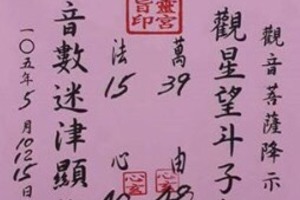 觀音菩薩降示
觀星望斗子
萬 39 由
法 15 心
靈宮
旨印
音數迷津顯
一〇五年5月10 12 15日